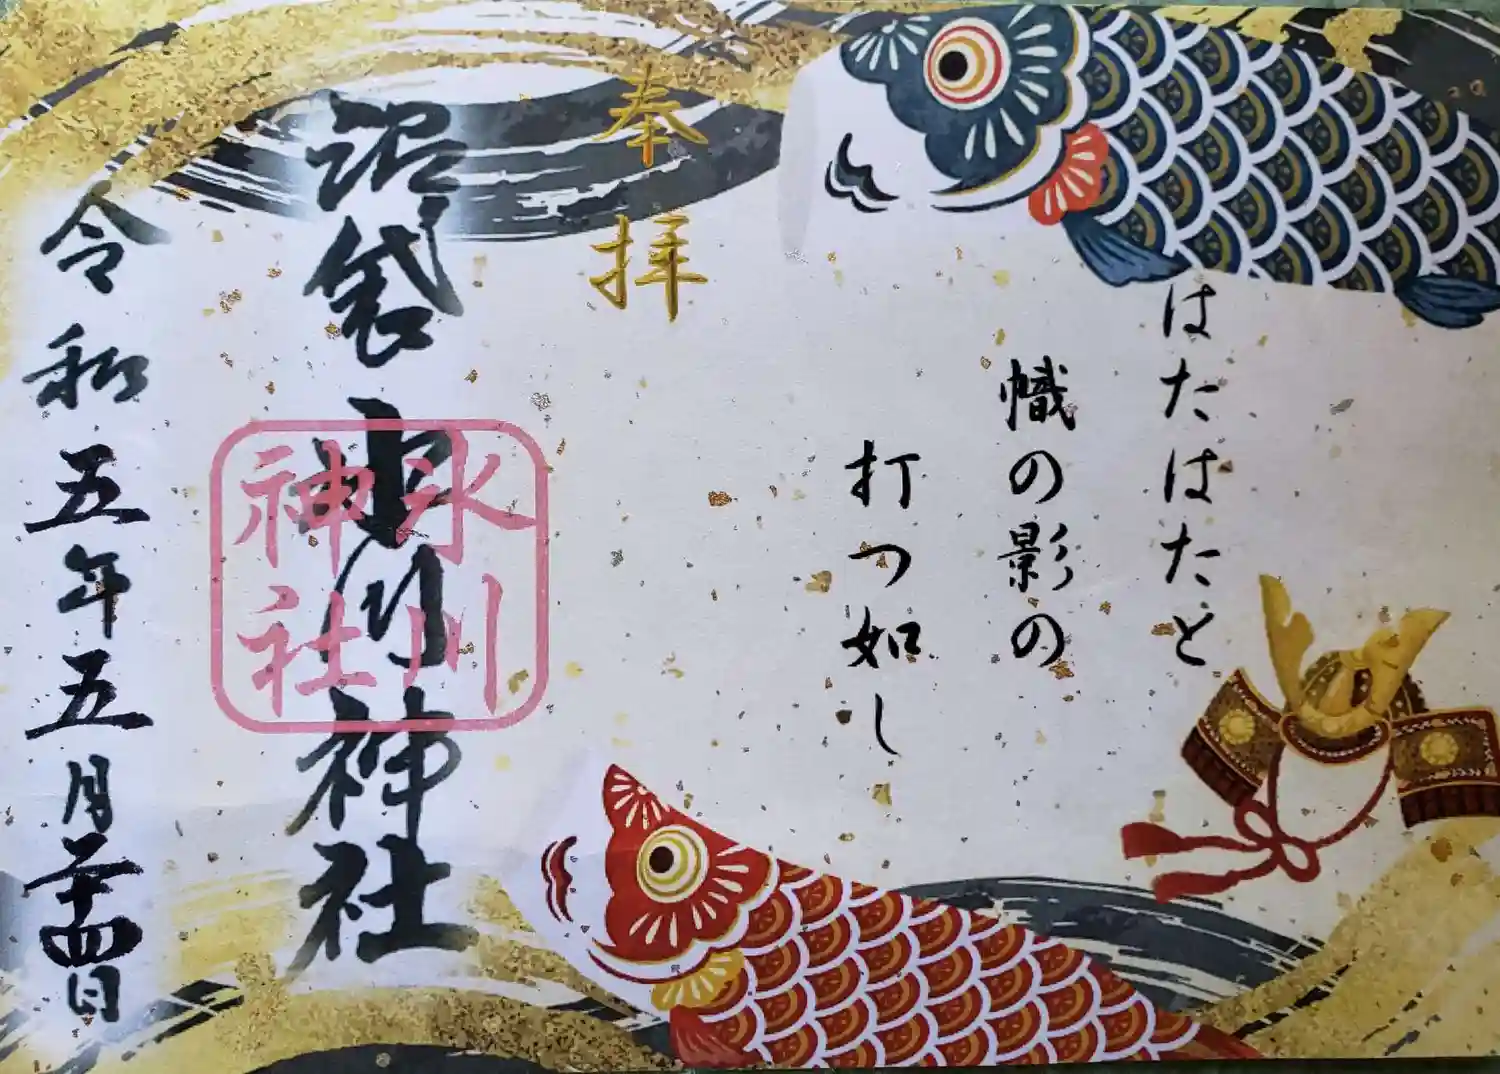 はたはたと
幟の影の
打つ如し
奉拝
沼袋氷川神社
氷川
神社
令和五年五月二十四日